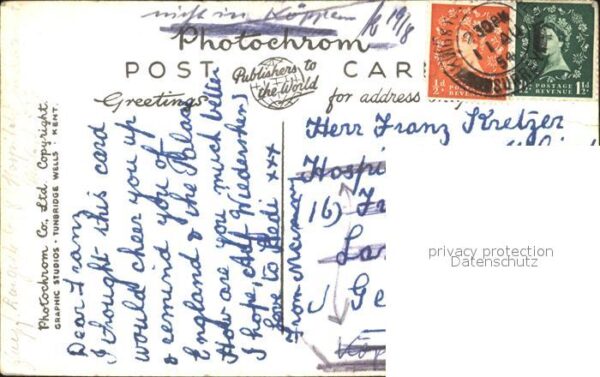 nicht in Köppern
19/8
Photochrom
POST CARD
Publishers to
the World
Greetings
for address
½D POSTAGE REVENUE ½D
POSTAGE REVENUE 1½D
2 30 PM
Photochrom Co., Ltd. Copyright.
GRAPHIC STUDIOS · TUNBRIDGE WELLS · KENT.
Dear Franz
I thought this card
would cheer you up
& remind you of
England & the Palace
How are you much better
I hope, Auf Wiedersehen
Love to Hedi xxx
From
Herr Franz Kretzer
Hospi
16)
privacy protection
Datenschutz